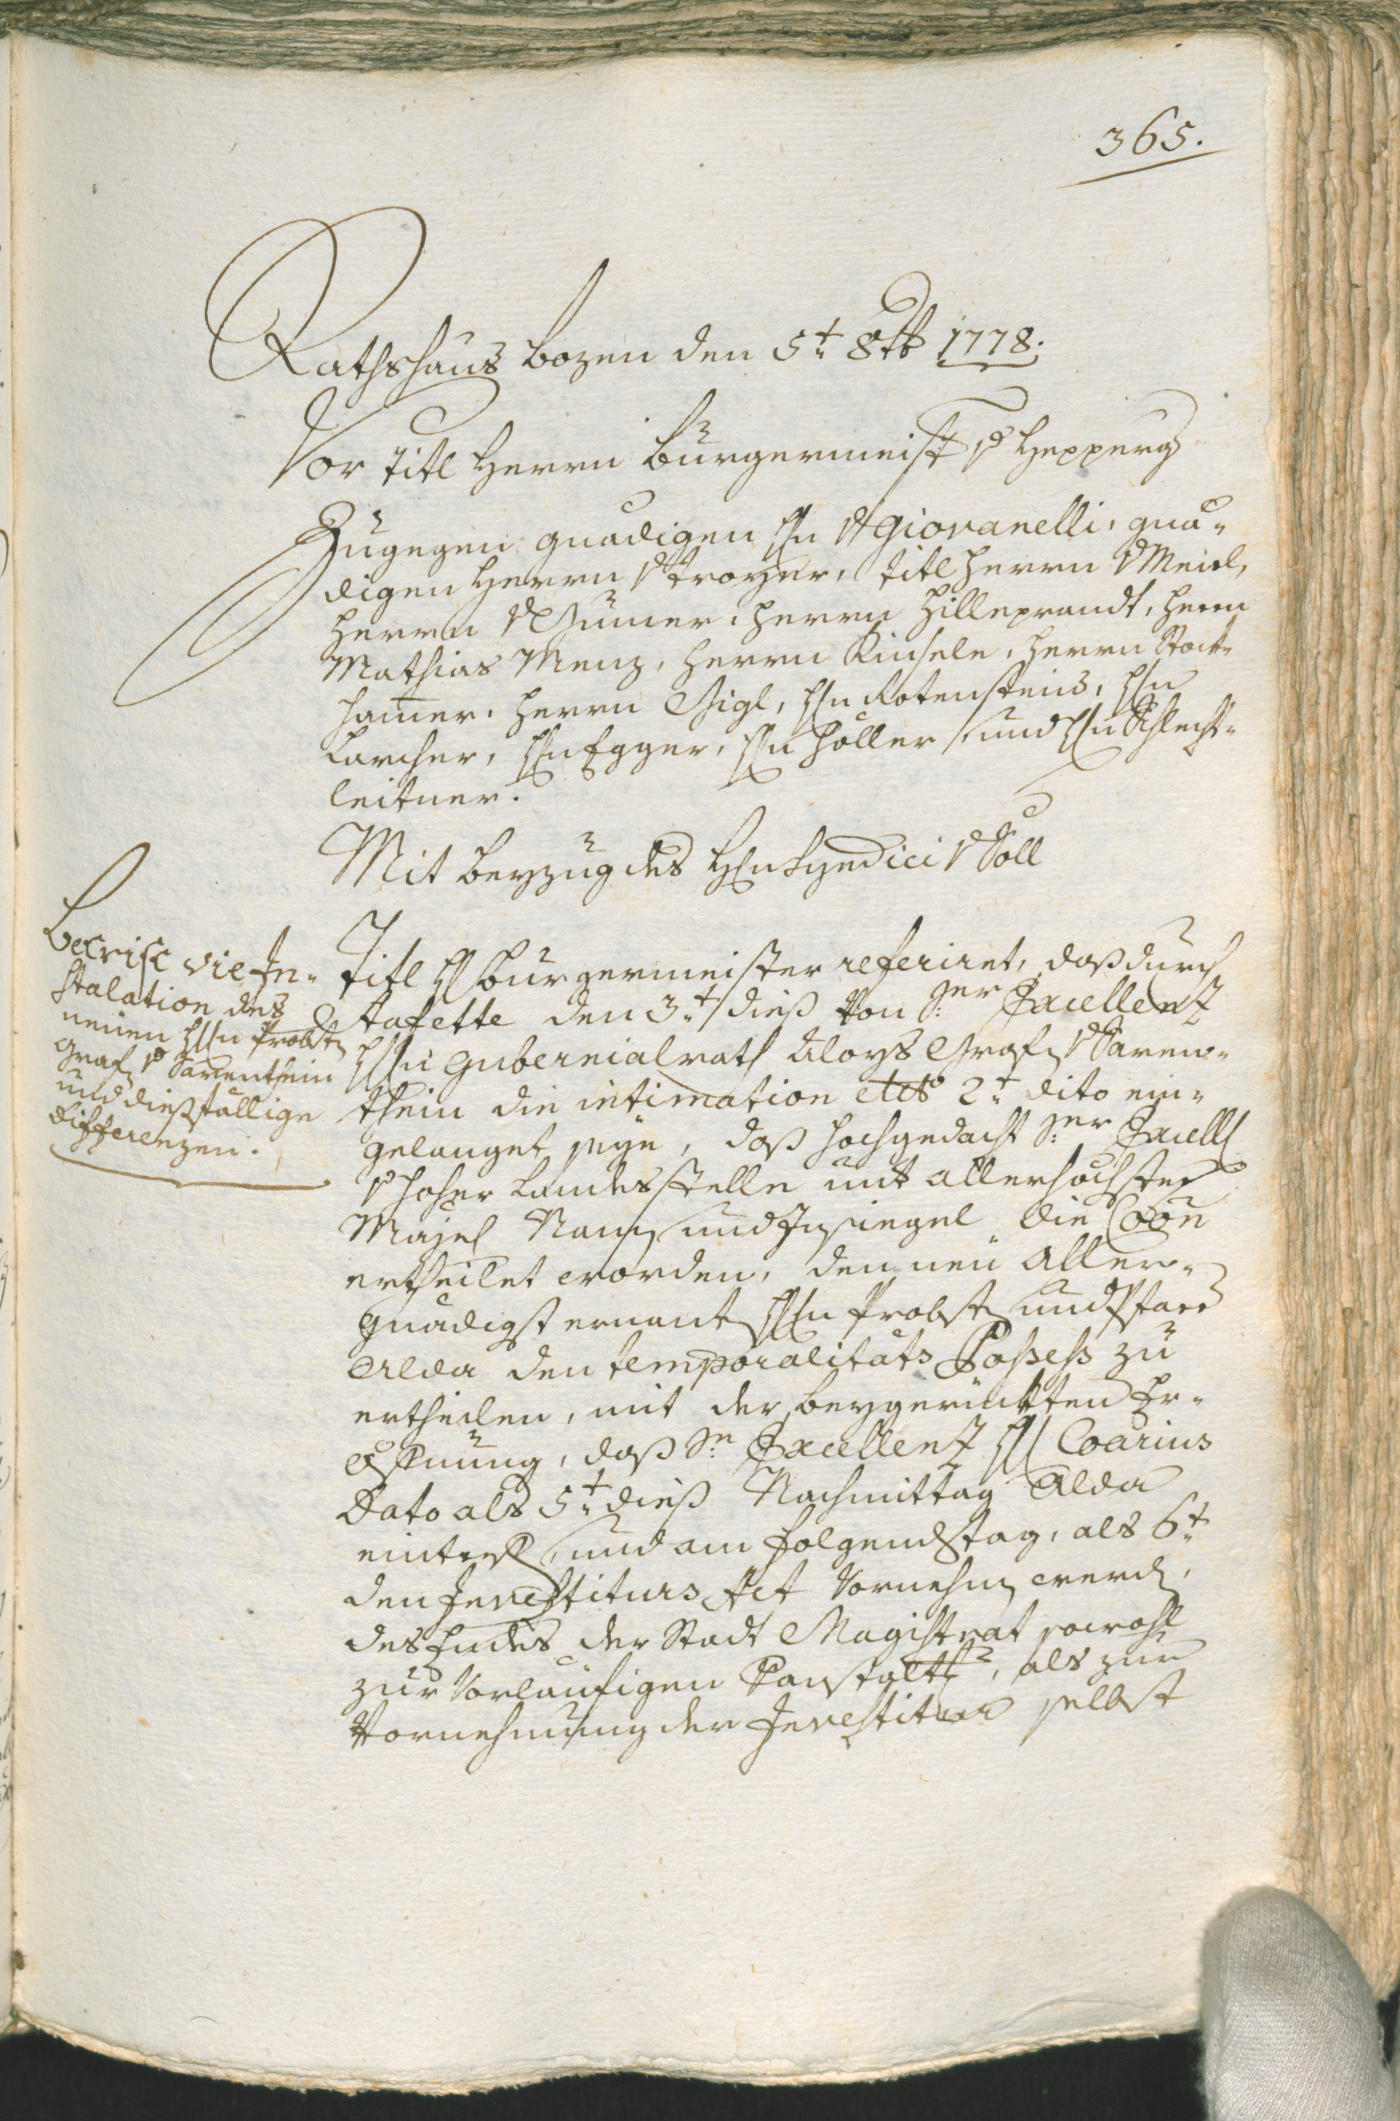 365.
Rathshaus Bozen den 5t 8tb 1778.
Vor titl Herrn Burgermeist v Hepperg
Zugegen gnädigen H[er]n v Giovanelli, gnä-
digen Herrn v Troyer, titl Herrn v Meirl,
Herrn v Gumer, Herrn Hilleprandt, Herrn
Mathias Menz, Herrn Kinsele, Herrn Stock-
hamer, Herrn Gigl, Hn Rotensteins, Hn
Larcher, Hn Egger, Hn Holler und Hn Schlecht-
leitner.
Mit Beyzug des Hn Syndici v Söll
Betrifft die In-
stalation des
neuen Hn Probsten
Graf v Sarenthein
und dießfällige
Differenzen.
Titl H Burgermeister referiret, daß durch
Stafette den 3t dieß von Sr Excellenz
Hn Gubernialrath Aloys Graf v Saren-
thein die intimation 2t dito ein-
gelanget seye, daß hochgedacht Sr Excell
v hoher Landesstelle unt allerhöchster
Majes Namen und Insiegel die Coon
ertheilet worden, den neu Aller-
gnädigst ernant Hn Probst und Pfarr
alda den temporalitäts Possess zu
ertheilen, mit der beygerückten Er-
öffnung, daß Sr Excellenz H Coarius
Dato als 5t dieß Nachmittag alda
eintreff und am folgends tag, als 6t
den Investiturs Act vornehmen werde,
des Endes der Stadt Magistrat sowohl
zur vorläufigen Panstalt, als zur
Vornehmung der Investitur selbst